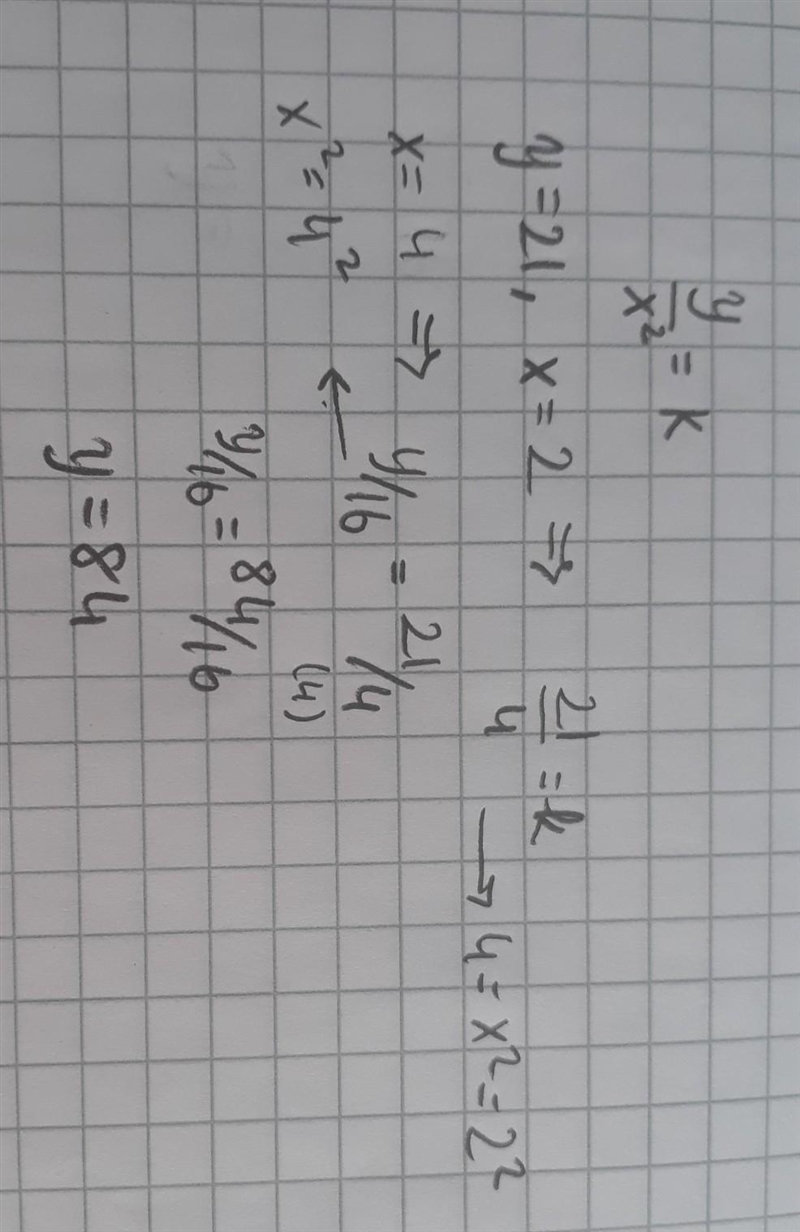 y/x² = k
y = 21, x = 2 ⇒ 21/4 = k
→ 4 = x² = 2²
x = 4 ⇒ y/16 = 21/4
x² = 4² ← (4)
y/16 = 84/16
y = 84